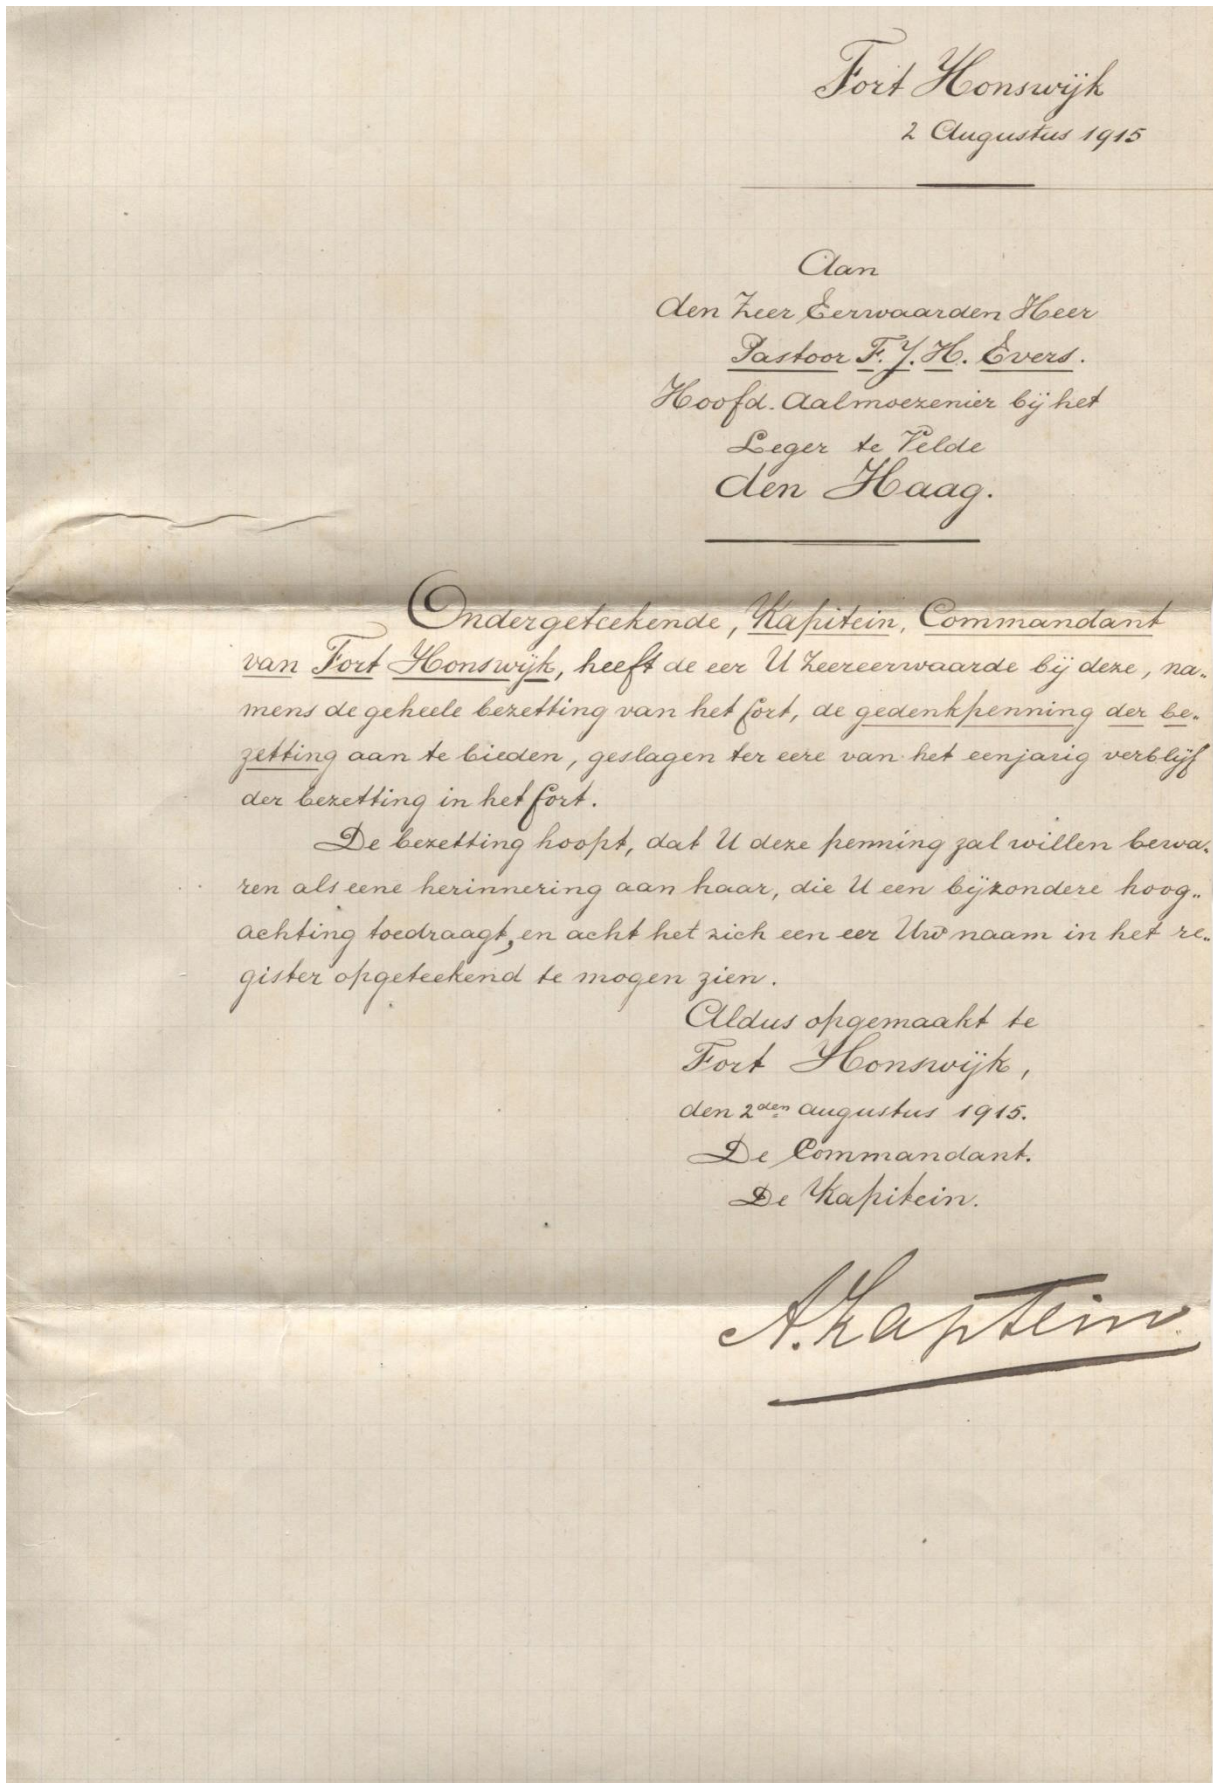 Fort Honswijk
2 Augustus 1915
Aan
den Zeer Eerwaarden Heer
Pastoor F. J. H. Evers.
Hoofd-Aalmoezenier bij het
Leger te Velde
den Haag.
Ondergeteekende, Kapitein, Commandant
van Fort Honswijk, heeft de eer U Zeereerwaarde bij deze, na-
mens de geheele bezetting van het fort, de gedenkpenning der be-
zetting aan te bieden, geslagen ter eere van het eenjarig verblijf
der bezetting in het fort.
De bezetting hoopt, dat U deze penning zal willen bewa-
ren als eene herinnering aan haar, die U een bijzondere hoog-
achting toedraagt, en acht het zich een eer Uw naam in het re-
gister opgeteekend te mogen zien.
Aldus opgemaakt te
Fort Honswijk,
den 2den augustus 1915.
De Commandant.
De Kapitein.
A. Kaptein